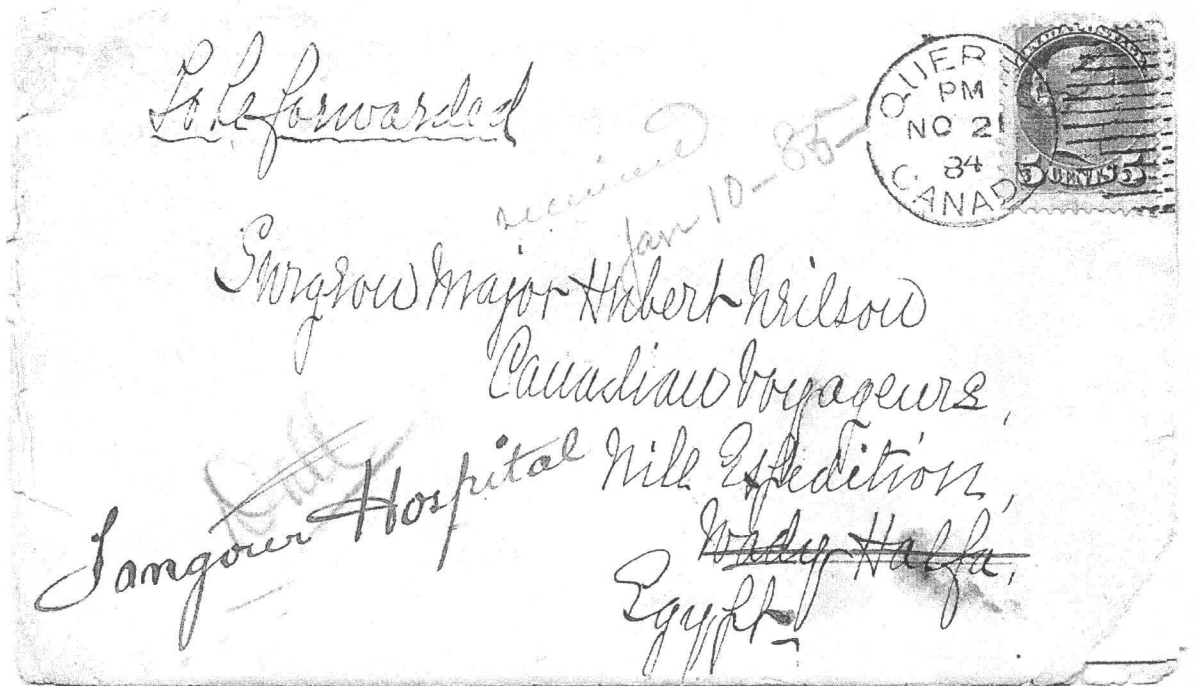 To be forwarded
QUIER
PM
NO 21
84
CANADA
received
Jan 10-85-
Surgeon Major Hubert Neilson
Canadian Voyageurs,
Nile Expedition,
Wady Halfa,
Egypt-
Sangour Hospital
5 CENTS 5